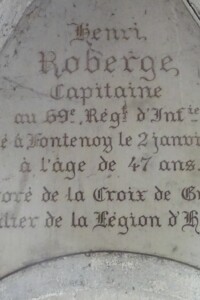 Henri
Roberge,
Capitaine
au 69e. Régt. d'Infie
é à Fontenoy le 2 janvi
à l'âge de 47 ans.
oré de la Croix de Gu
lier de la Légion d'H